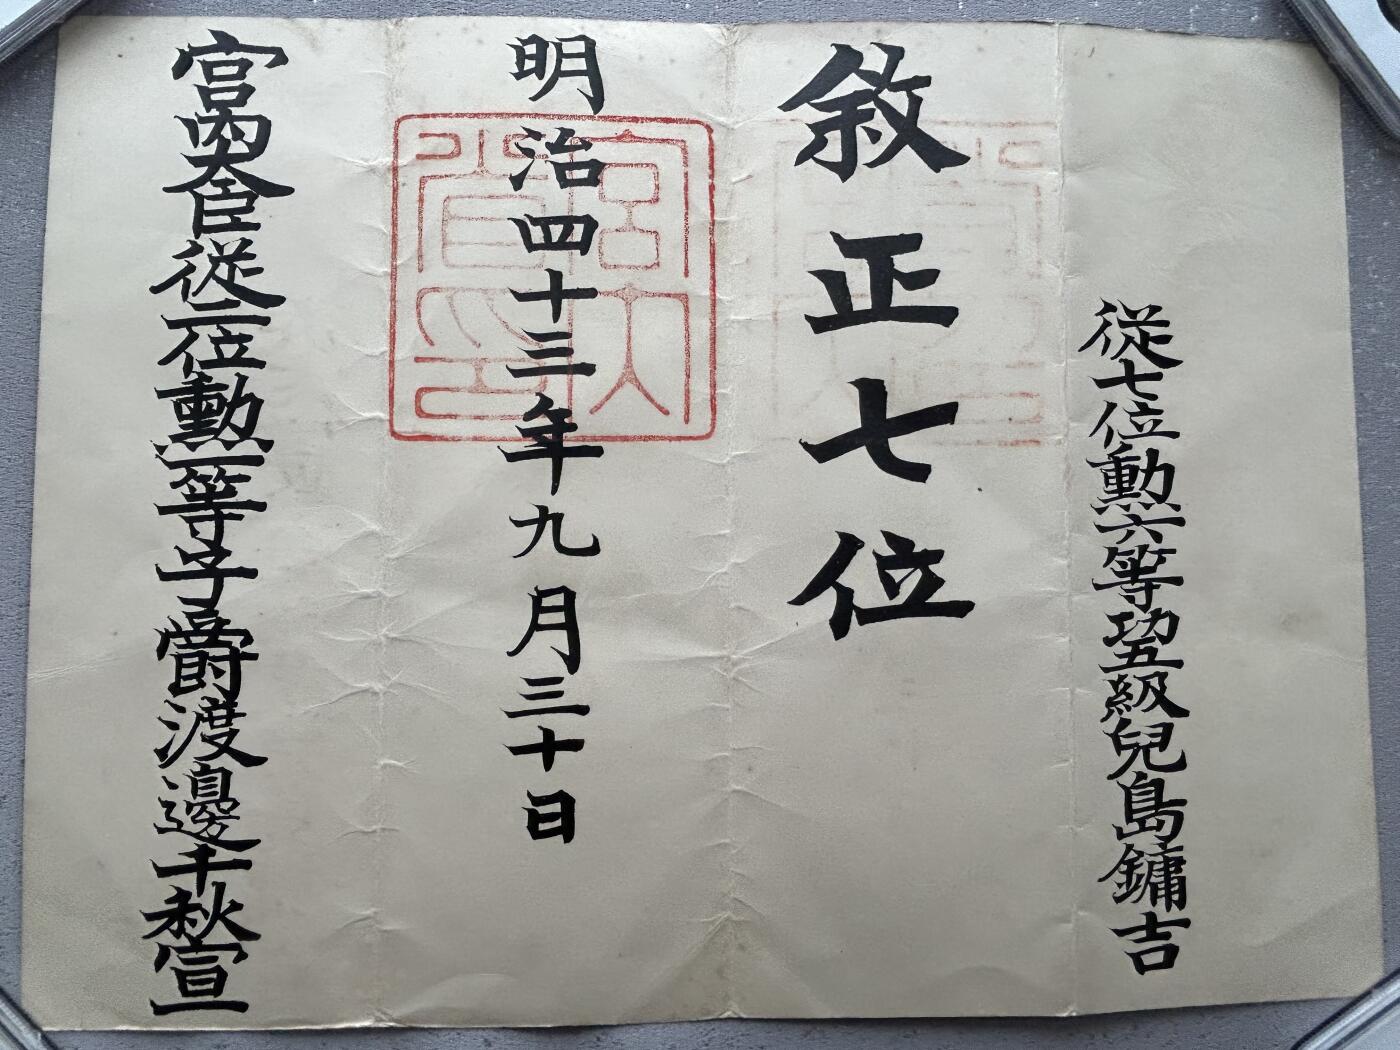 從七位勳六等功五級兒島鏞吉
敘正七位
明治四十三年九月三十日
宮內大臣從二位勳一等子爵渡邊千秋宣
宮內大臣之印